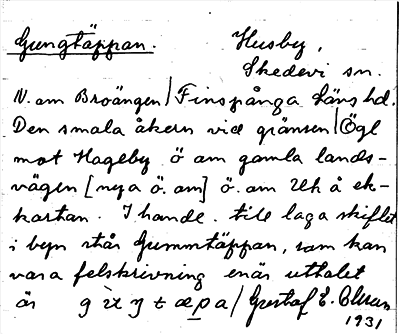 Gungtäppan. Husby,
Skedevi sn.
N. om Broängen / Finspånga läns hd.
Den smala åkern vid gränsen / Ögl
mot Hageby ö om gamla lands-
vägen [nya ö. om] ö. om Uh å ek-
kartan. I handl. till laga skiftet
i byn står Gummtäppan, som kan
vara felskrivning enär uttalet
är / Gustaf E. Olsson
1931